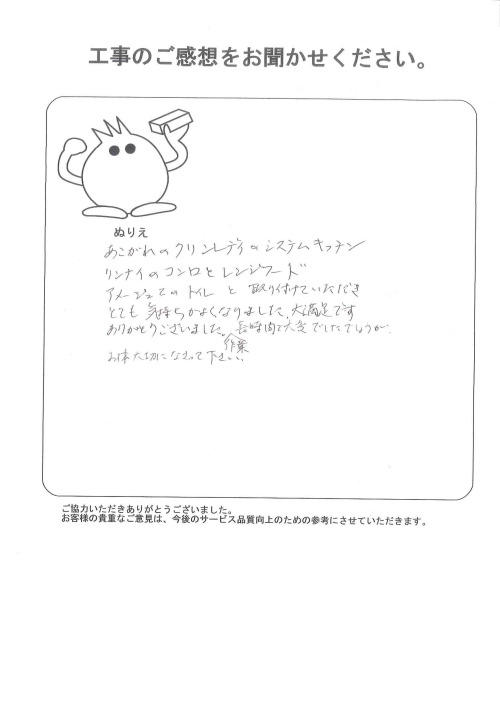 工事のご感想をお聞かせください。
ぬりえ
あこがれのクリンレディのシステムキッチン
リンナイのコンロとレンジフード
アメージュZのトイレ と 取り付けていただき
とても 気持ちがよくなりました。大満足です
ありがとうございました。長時間で大変でしたでしょうが、
作業
お体大切になさって下さい。
ご協力いただきありがとうございました。
お客様の貴重なご意見は、今後のサービス品質向上のための参考にさせていただきます。